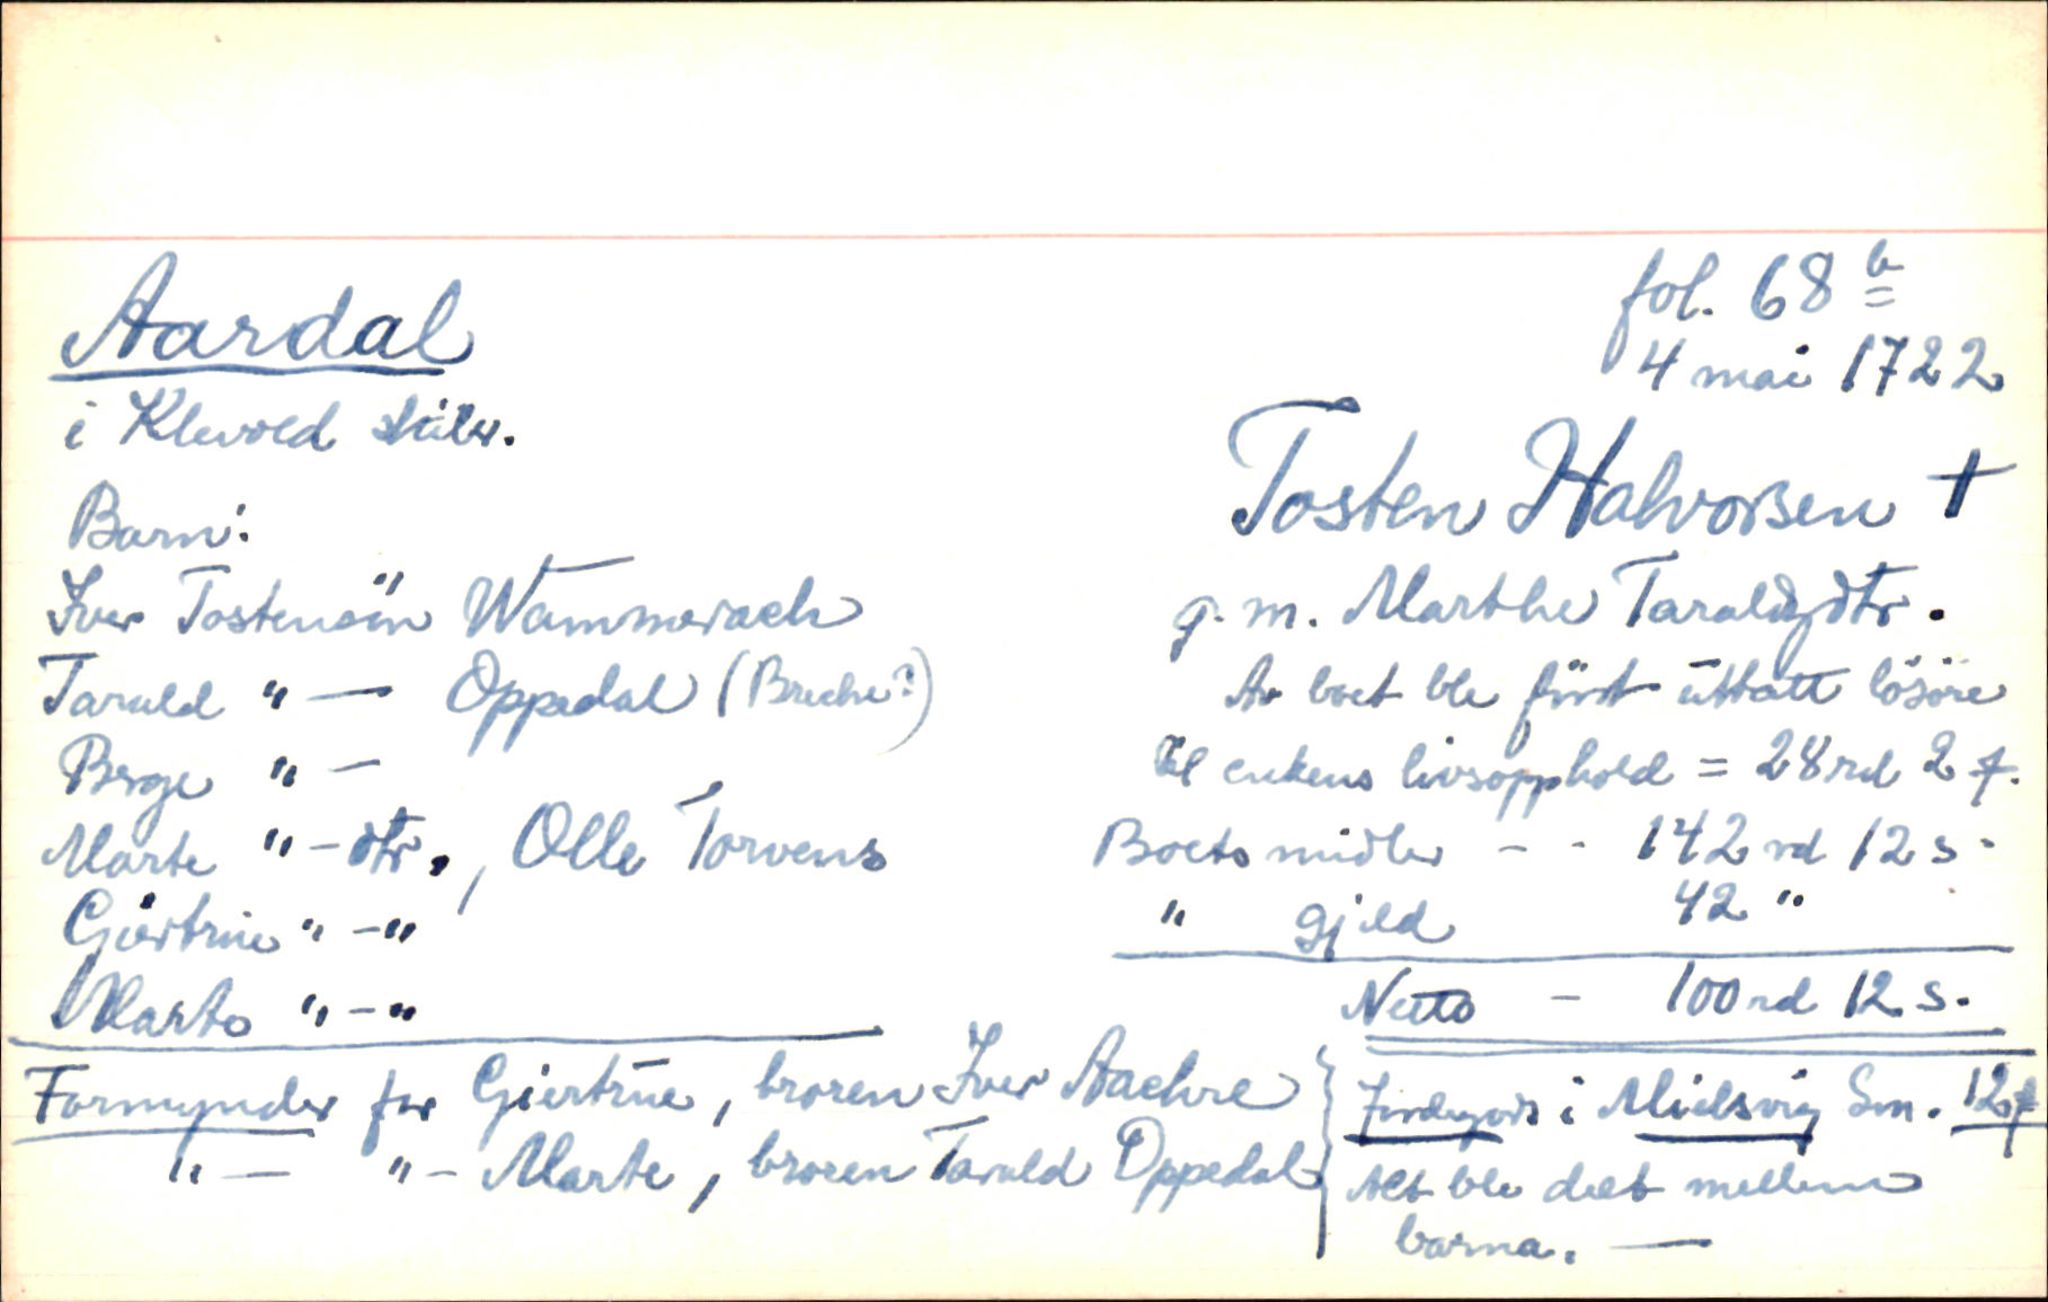 fol. 68 b
4 mai 1722
Aardal
i Klevold skibr.
Tosten Halvorsen †
g. m. Marthe Taraldsdtr.
Av boet ble först ūttatt lösöre
til enkens livsopphold = 28 rd 2 ƒ.
Boets midler - - 142 rd 12 s -
" gjeld 42 "
Netto - 100 rd 12 s.
Barn:
Iver Tostensön Wammerach
Tarald " — Oppedal (Breche?)
Berge " —
Marte " - dtr., Olle Torvens
Giertrūe " - "
Marte " - "
Formynder for Giertrūe, broren Iver Aachre
" — " - Marte, broren Tarald Oppedal
Jordegods i Mielsvig Sm. 12
Alt ble delt mellem
barna. —